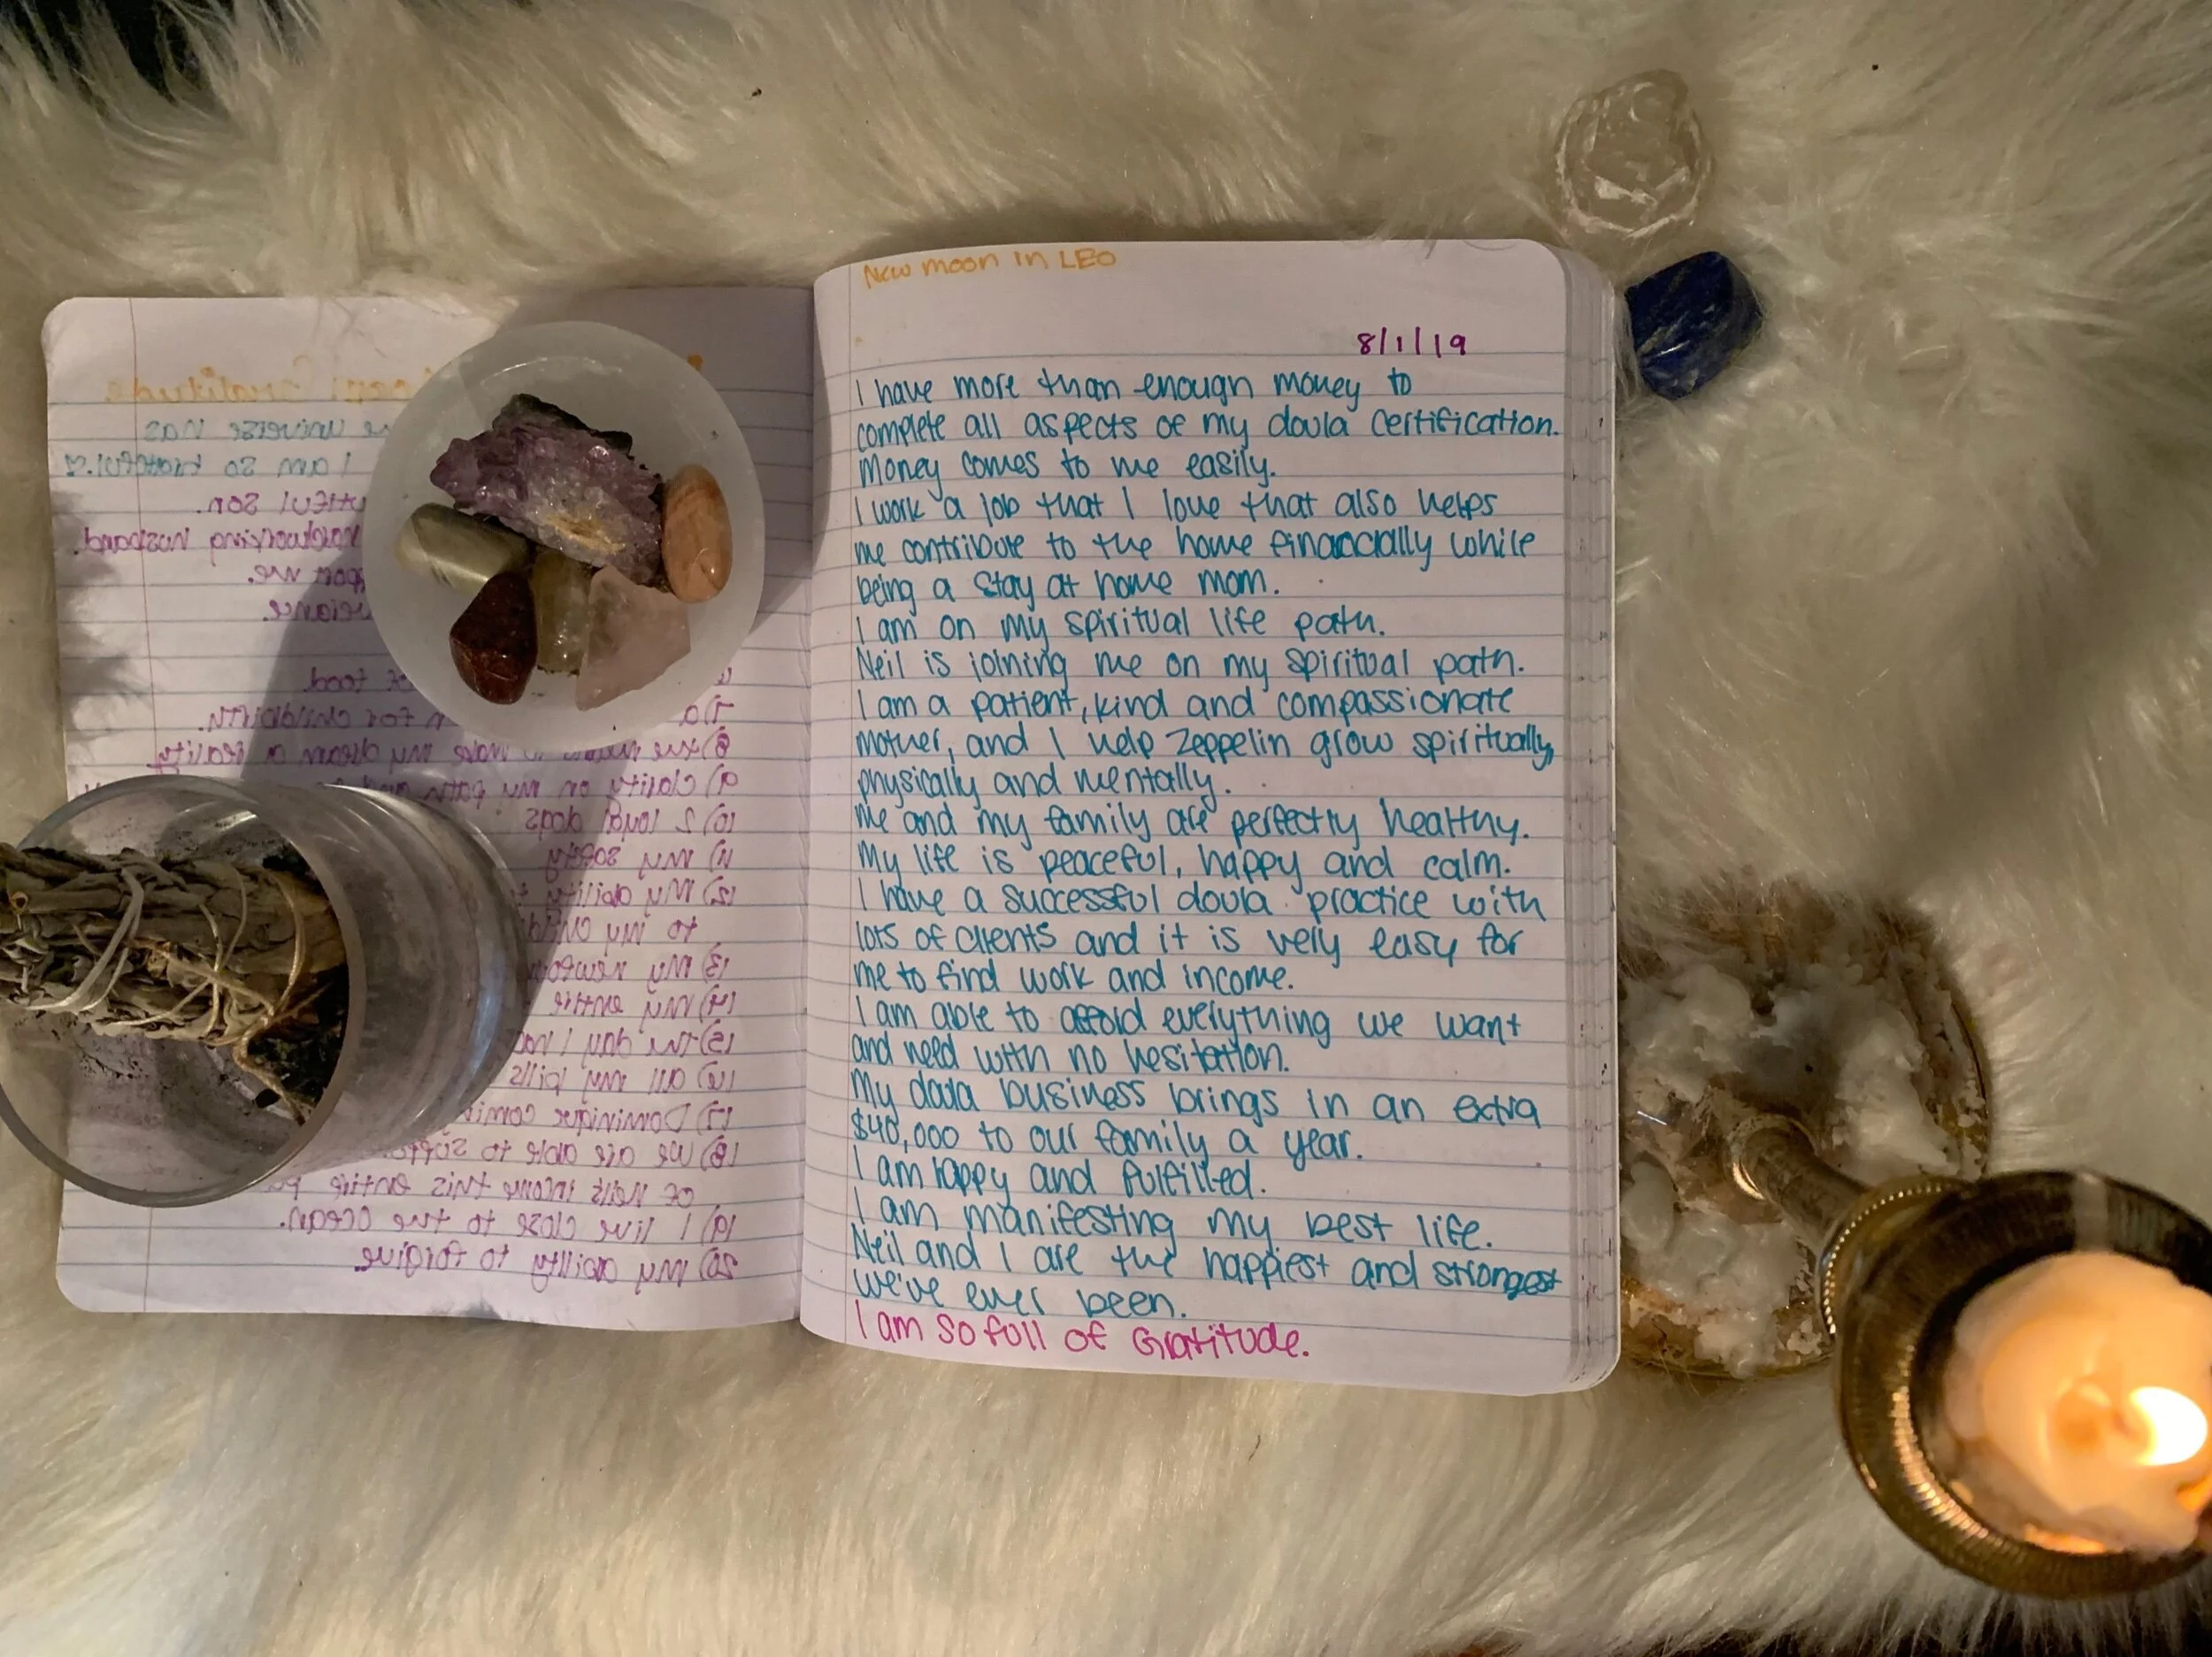 Gratitude
universe has
I am so grateful.
son.
hardworking husband.
me.
of food
for childbirth.
8) to make my dream a reality
9) clarity on my path
10) 2 loyal dogs
11) my safety
12) my ability
to my
13) my
14) my entire
15) the day I
16) all my bills
17) Dominique
18) we are able to
of Neil's income this entire
19) I live close to the ocean.
20) my ability to forgive.
New moon in LEO
8/1/19
I have more than enough money to
complete all aspects of my doula certification.
Money comes to me easily.
I work a job that I love that also helps
me contribute to the home financially while
being a stay at home mom.
I am on my spiritual life path.
Neil is joining me on my spiritual path.
I am a patient, kind and compassionate
mother, and I help Zeppelin grow spiritually,
physically and mentally.
Me and my family are perfectly healthy.
My life is peaceful, happy and calm.
I have a successful doula practice with
lots of clients and it is very easy for
me to find work and income.
I am able to afford everything we want
and need with no hesitation.
My doula business brings in an extra
$40,000 to our family a year.
I am happy and fulfilled.
I am manifesting my best life.
Neil and I are the happiest and strongest
we've ever been.
I am so full of Gratitude.